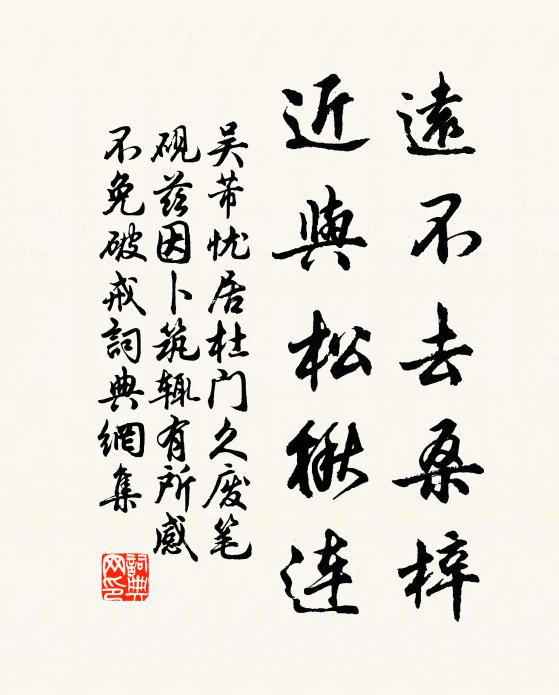 遠不去桑梓
近與松楸連
吴芾忧居杜门久废笔
砚兹因卜筑辄有所感
不免破戒詞典網集
詞典
网印